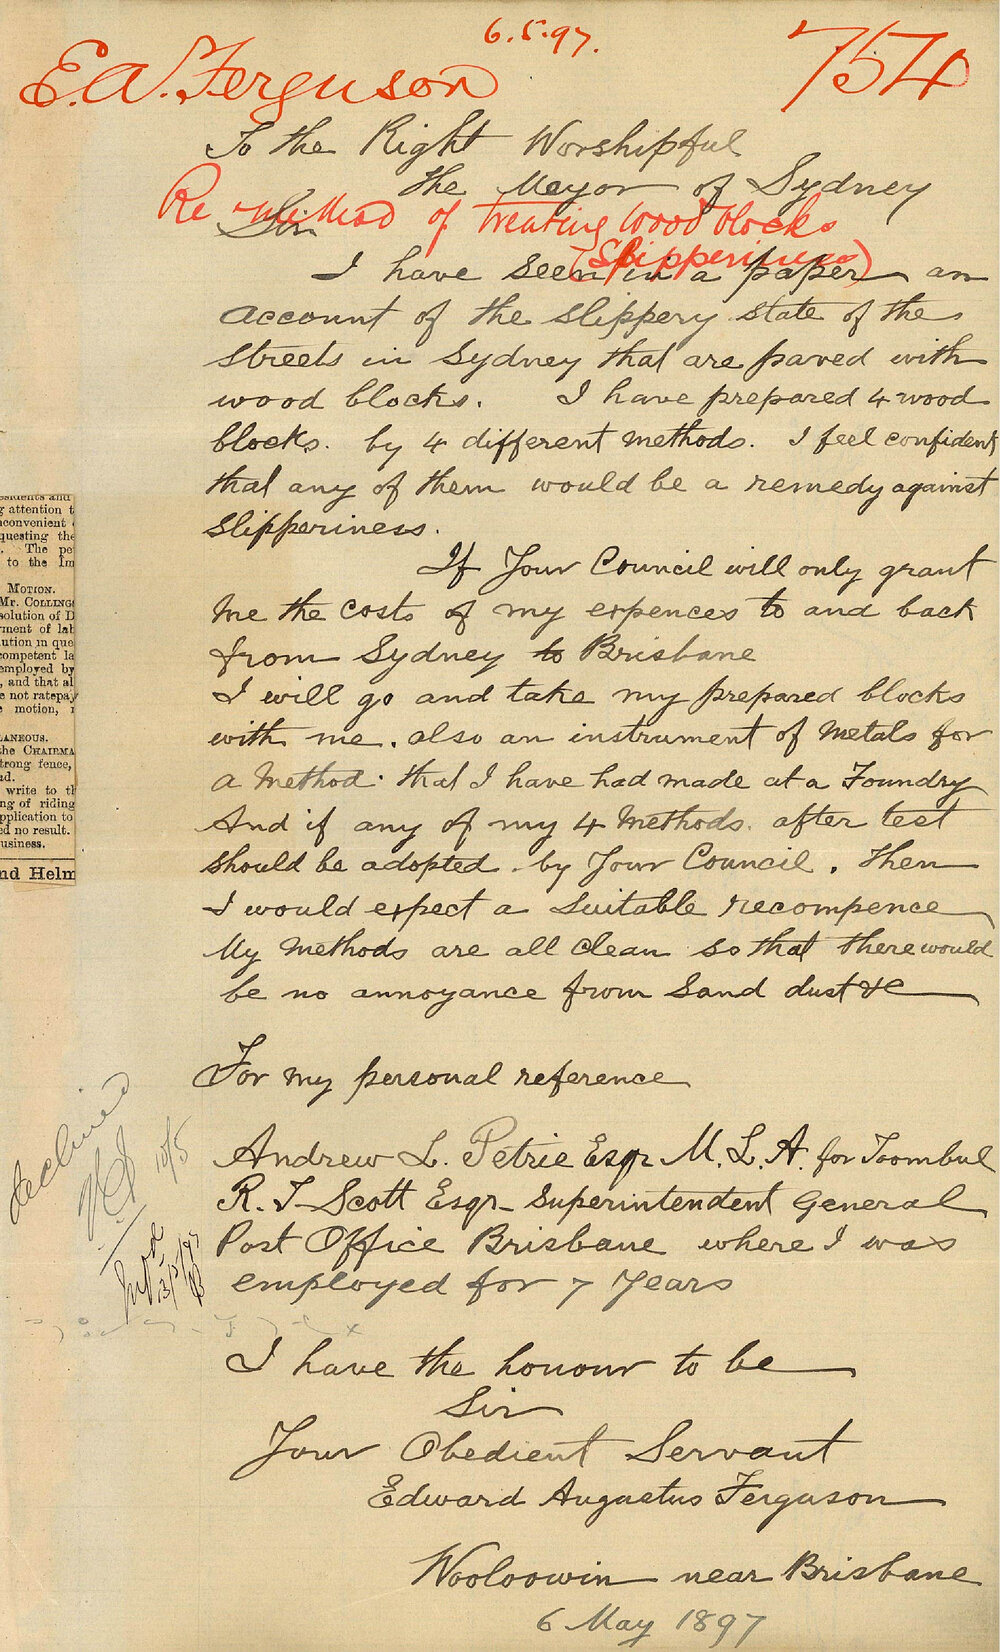 6.5.97.
E.A. Ferguson
754
To the Right Worshipful
the Mayor of Sydney
Re method of treating wood blocks
(Slipperiness)
Sir
I have seen in a paper an
account of the slippery state of the
streets in Sydney that are paved with
wood blocks. I have prepared 4 wood
blocks. by 4 different methods. I feel confident
that any of them would be a remedy against
slipperiness.
If Your Council will only grant
me the costs of my expences to and back
from Sydney to Brisbane
I will go and take my prepared blocks
with me. also an instrument of metals for
a method. that I have had made at a Foundry
And if any of my 4 methods. after test
should be adopted by Your Council. Then
I would expect a suitable recompence
My methods are all clean so that there would
be no annoyance from sand dust &c
For my personal reference
Andrew L. Petrie Esqr M.L.A. for Toombul
R. T. Scott Esqr. Superintendent General
Post Office Brisbane where I was
employed for 7 Years
I have the honour to be
Sir
Your Obedient Servant
Edward Augustus Ferguson
Wooloowin near Brisbane
6 May 1897
declined
10/5
13/5/97
esidents and
g attention t
nconvenient
questing the
. The pe
to the Im
MOTION.
Mr. COLLING
solution of D
rment of lab
ution in que
competent la
employed by
, and that al
e not ratepay
e motion,
LANEOUS.
the CHAIRMA
trong fence,
d.
write to th
ng of riding
pplication to
ed no result.
usiness.
nd Helm